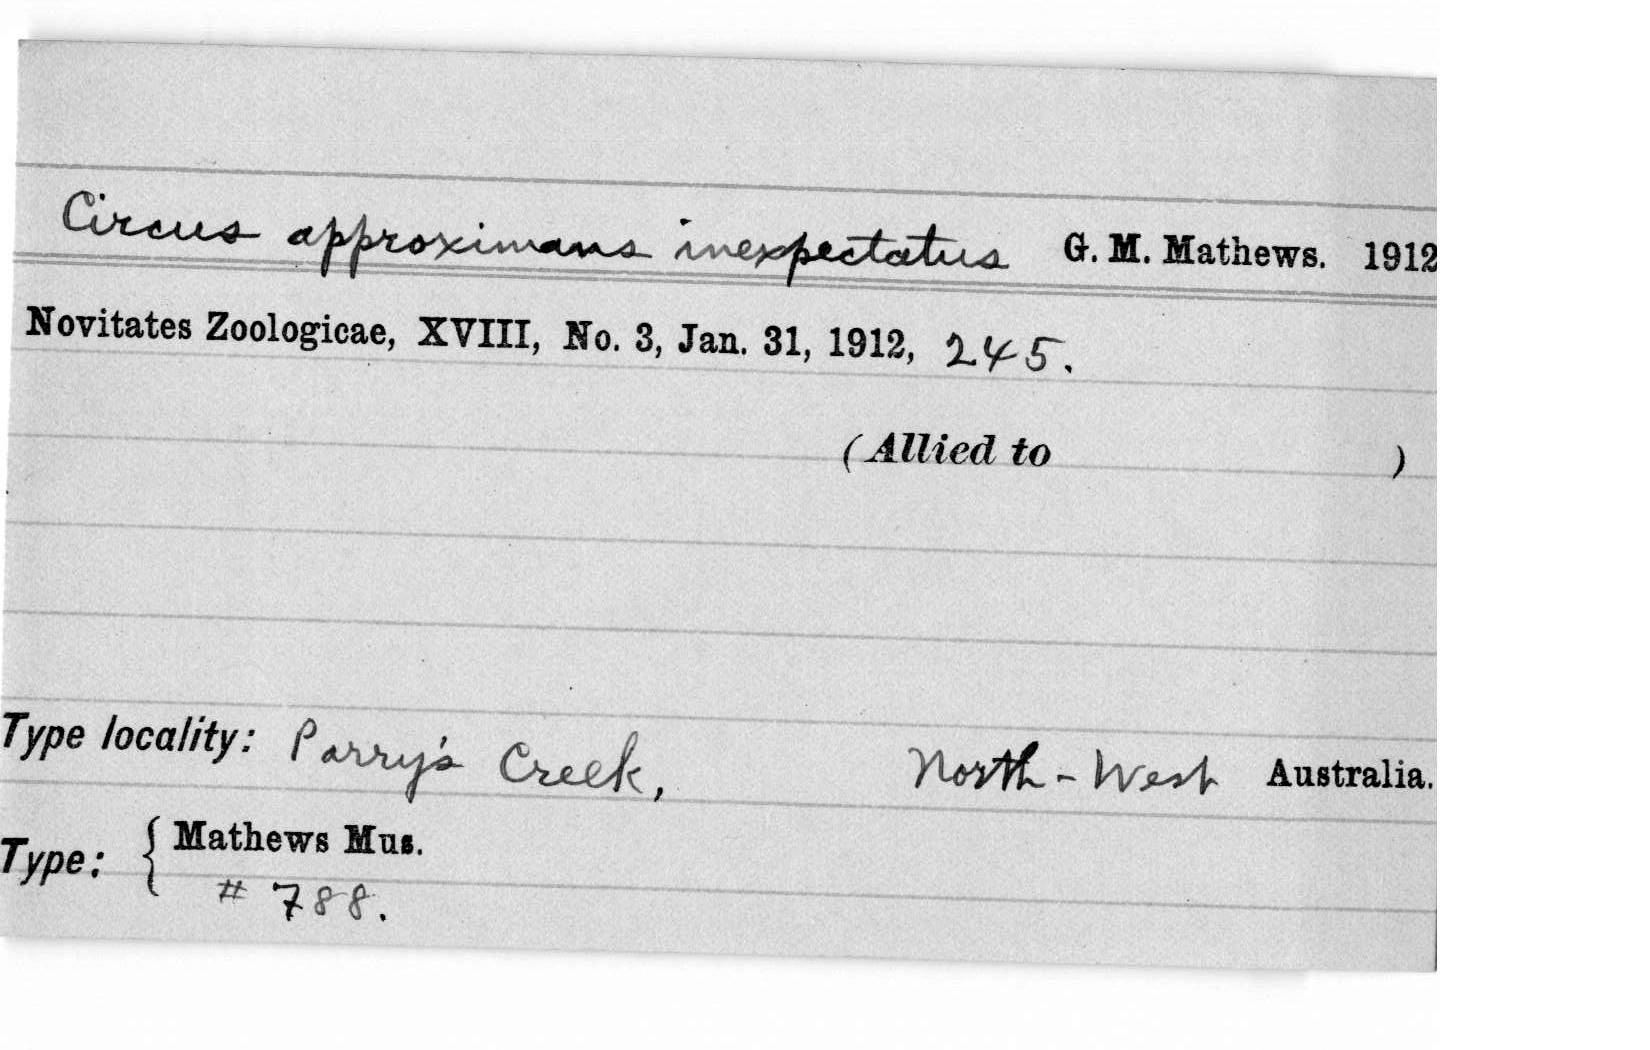 Circus approximans inexpectatus G. M. Mathews. 1912
Novitates Zoologicae, XVIII, No. 3, Jan. 31, 1912, 245.
(Allied to )
Type locality: Parry's Creek, North-West Australia.
Type: { Mathews Mus.
# 788.